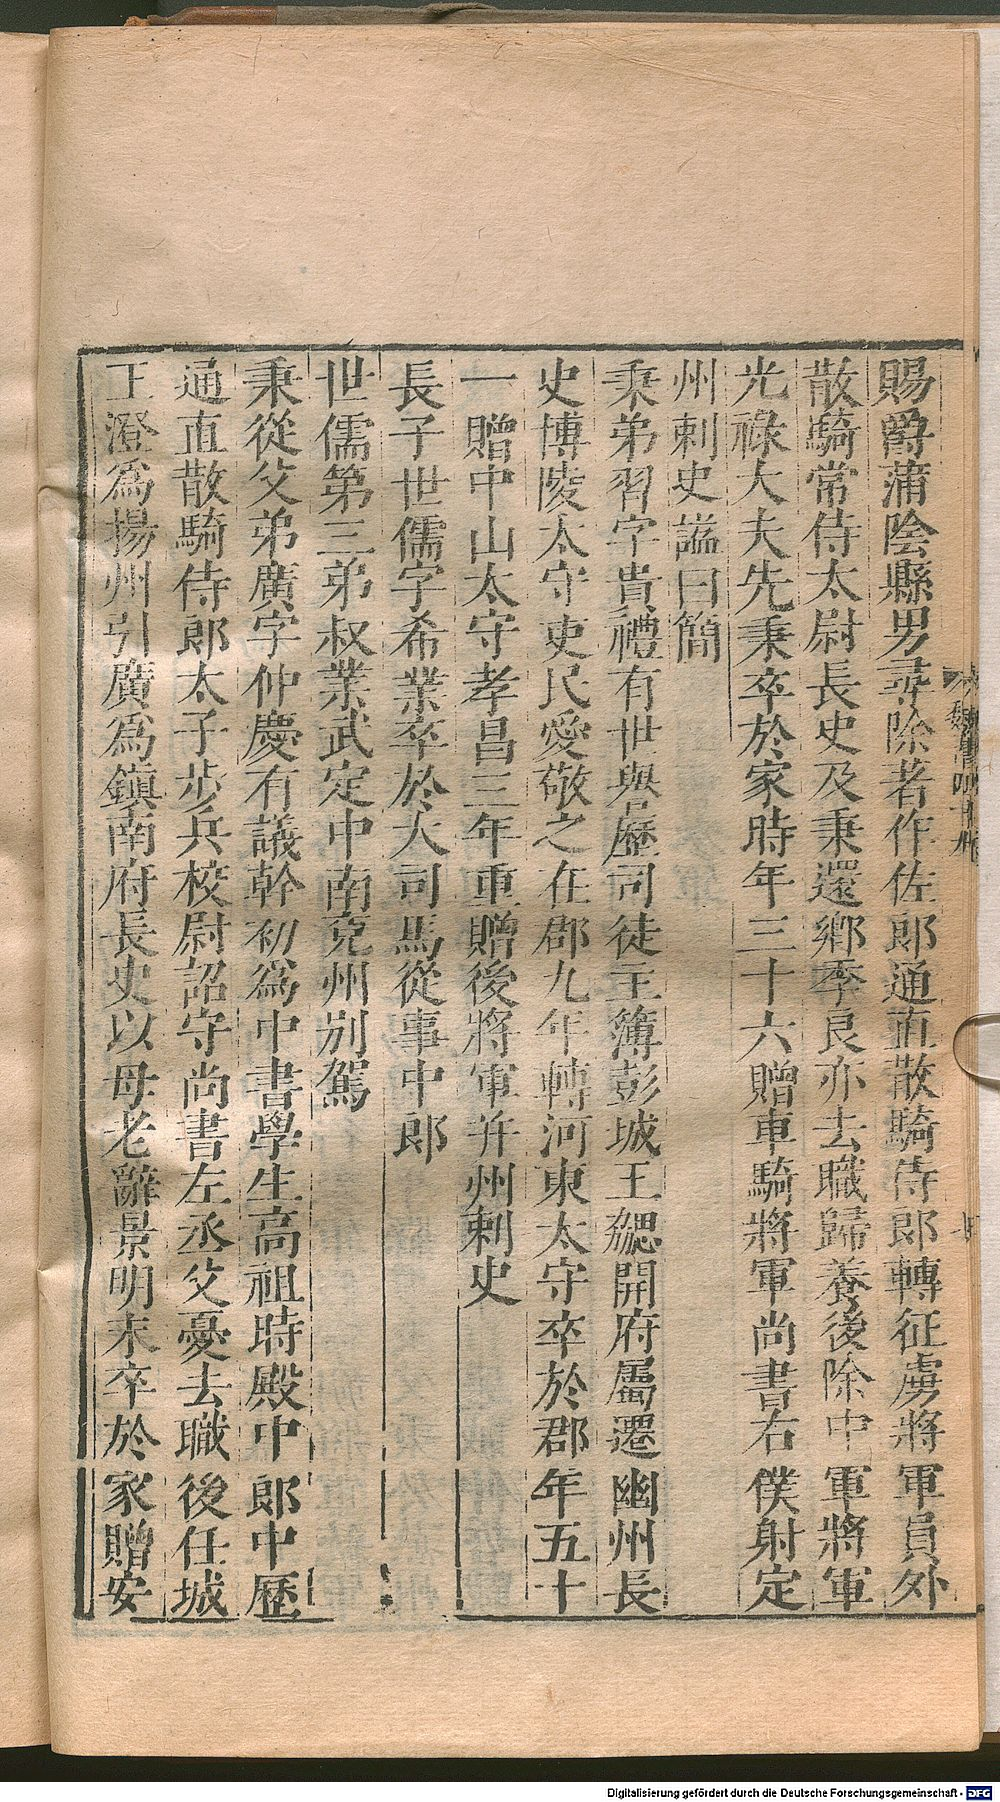 賜爵蒲陰縣男尋除著作佐郎通直散騎侍郎轉征虜將軍員外
散騎常侍太尉長史及秉還鄉季良亦去職歸養後除中軍將軍
光祿大夫先秉卒於家時年三十六贈車騎將軍尚書右僕射定
州刺史謚曰簡
秉弟習字貴禮有世譽歷司徒主簿彭城王勰開府屬遷幽州長
史博陵太守吏民愛敬之在郡九年轉河東太守卒於郡年五十
一贈中山太守孝昌三年重贈後將軍并州刺史
長子世儒字希業卒於大司馬從事中郎
世儒第三弟叔業武定中南兗州別駕
秉從父弟廣字仲慶有議幹初為中書學生高祖時殿中郎中歷
通直散騎侍郎太子步兵校尉詔守尚書左丞父憂去職後任城
王澄為揚州引廣為鎮南府長史以母老辭景明末卒於家贈安
Digitalisierung gefördert durch die Deutsche Forschungsgemeinschaft - DFG